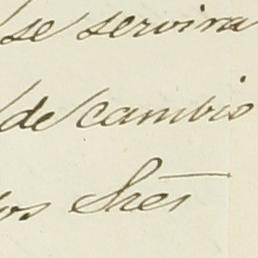 se servira
de cambio
os Sres